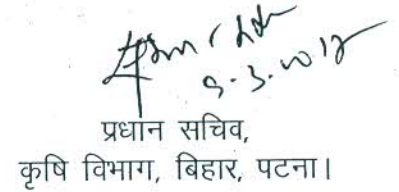 9.3.2012
प्रधान सचिव,
कृषि विभाग, बिहार, पटना।